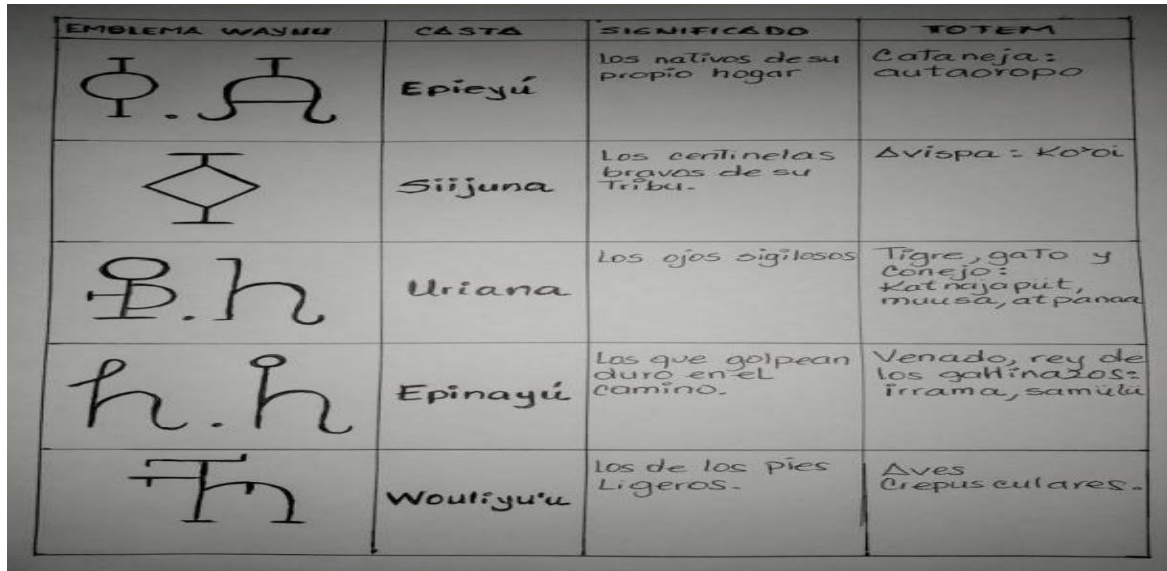 EMBLEMA WAYUU CASTA SIGNIFICADO TOTEM
Epieyú
Los nativos de su
propio hogar
Cataneja:
autaoropo
Siijuna
Los centinelas
bravos de su
Tribu.
Avispa: Ko'oi
Uriana
Los ojos sigilosos
Tigre, gato y
conejo:
Katnajapüt,
muusa, atpanaa
Epinayú
Los que golpean
duro en el
camino.
Venado, rey de
los gallinazos:
irrama, samülü
Wouliyu'u
Los de los pies
Ligeros.
Aves
Crepusculares.